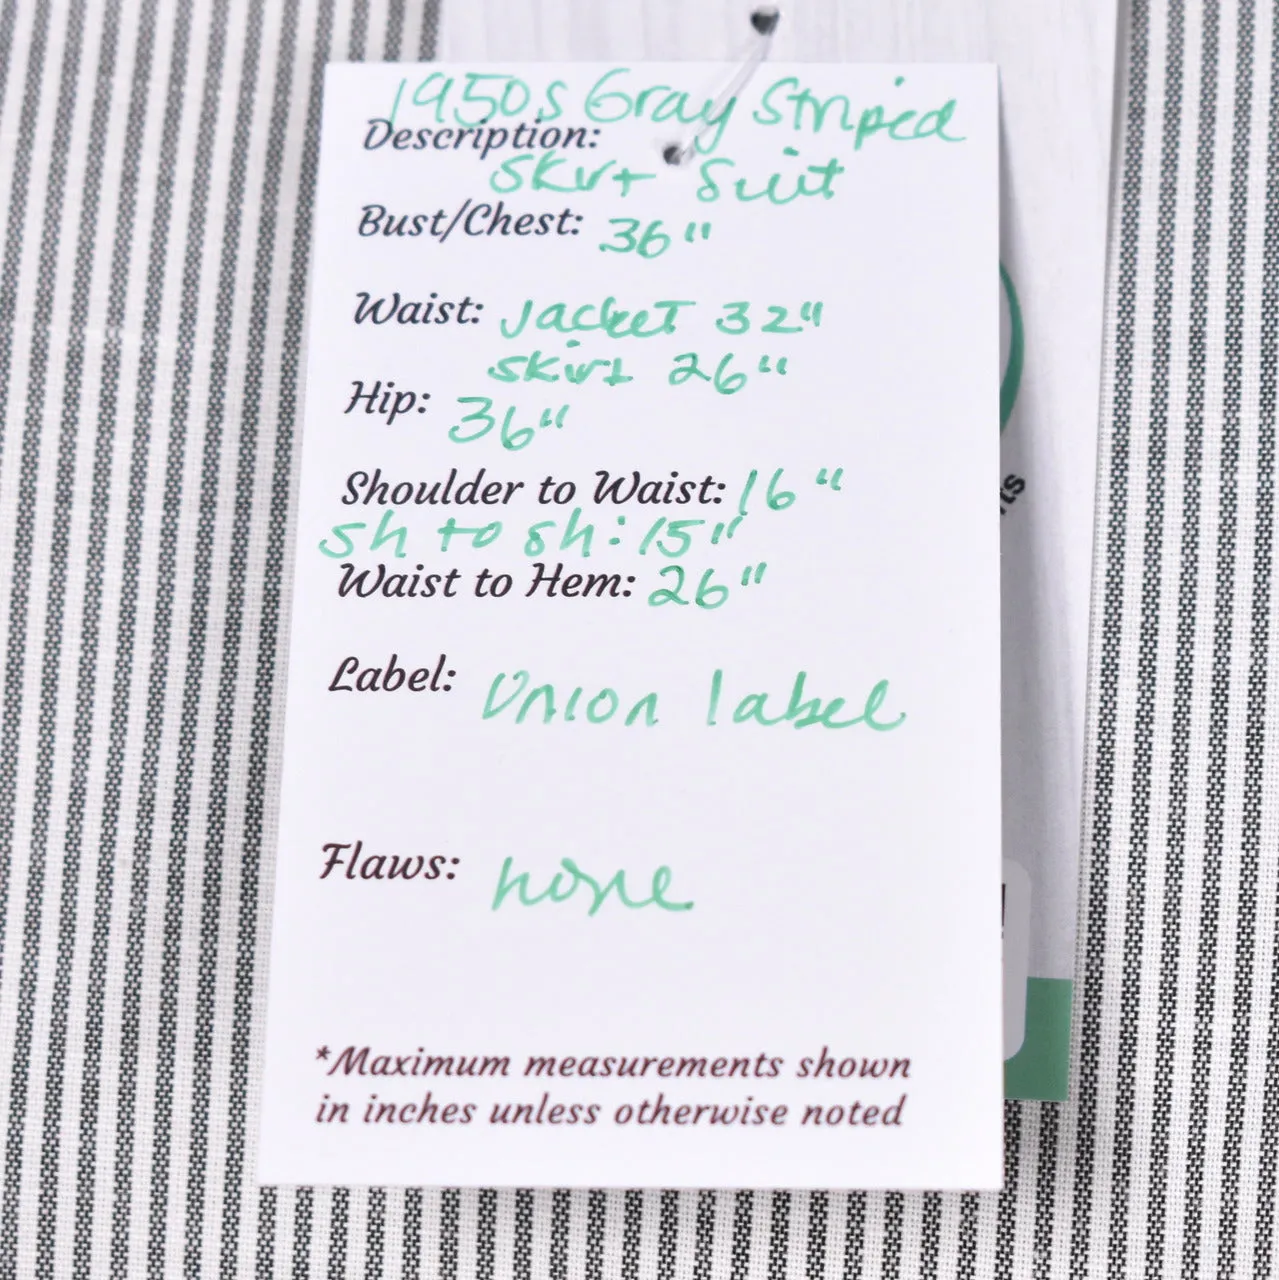 1950s Gray Striped
Description:
Skirt Suit
Bust/Chest: 36"
Waist: Jacket 32"
skirt 26"
Hip: 36"
Shoulder to Waist: 16"
sh to sh: 15"
Waist to Hem: 26"
Label: Union label
Flaws: none
*Maximum measurements shown
in inches unless otherwise noted